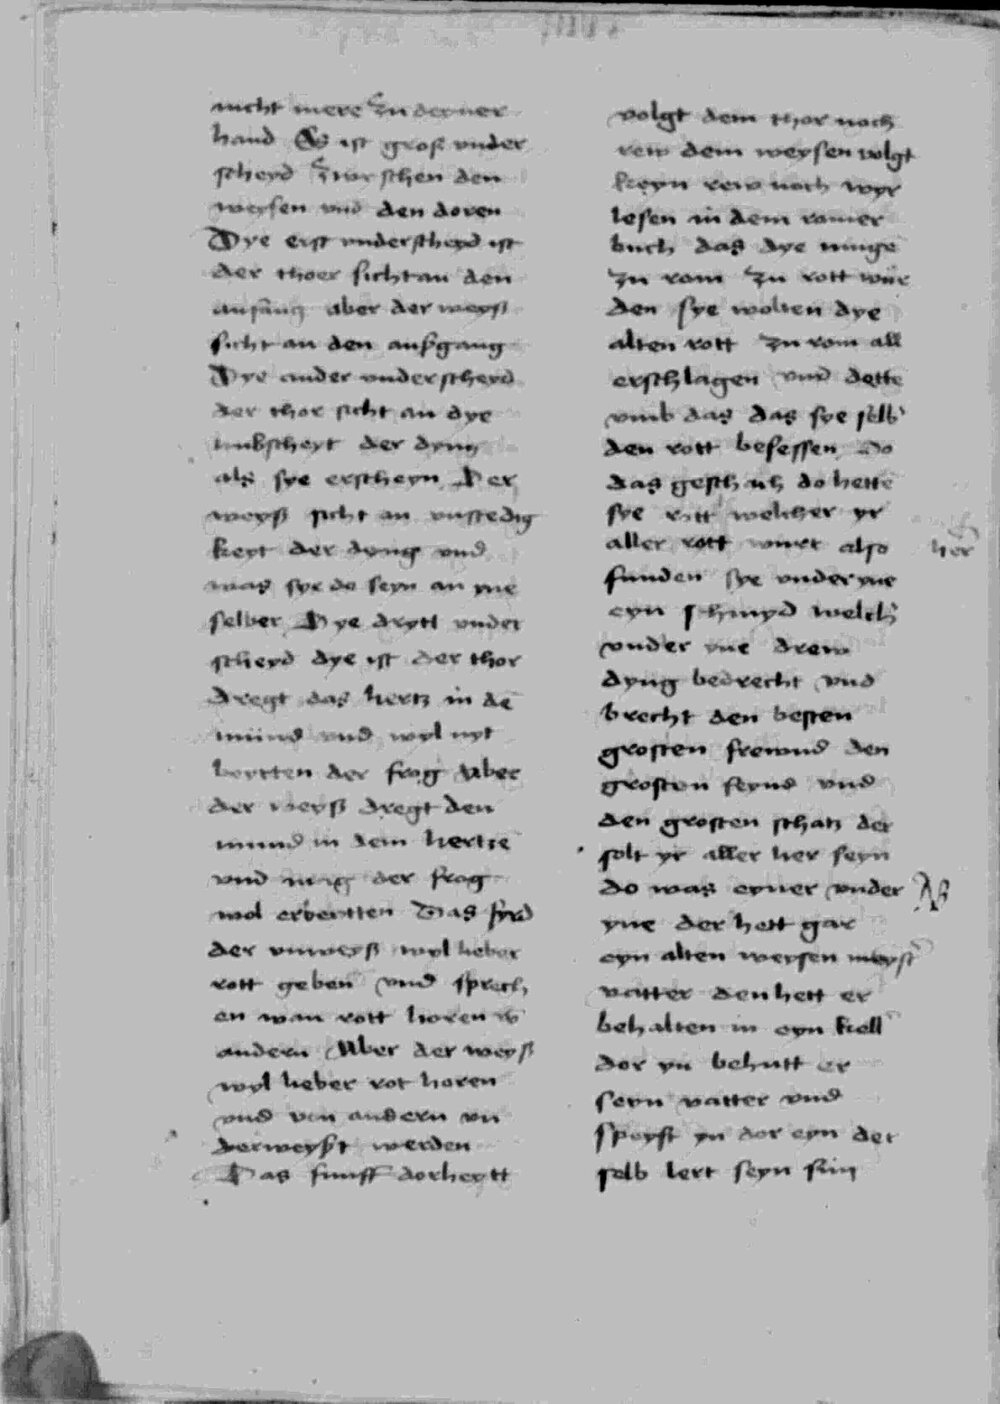 nicht mere zu deyner
hand Es ist groß vnder
scheyd zwyschen den
weysen vnd den doren
Dye erst vnderscheyd ist
der thoer sicht an den
anfang aber der weyß
sicht an den außgang
Dye ander vnderscheyd
der thor sicht an dye
der dyng
als sye erscheyn Der
weyß sicht an vnstedig
keyt der dyng vnd
was sye do seyn an yne
selber Dye drytt vnder
scheyd dye ist der thor
dregt das hertz in de
mund vnd wyl nyt
beytten der frog Aber
der weyß dregt den
mund in dem hertze
vnd mag der frog
wol erbeytten Das fyrd
der vnweyß wyl lieber
rott geben vnd sprech
en wan rott horen vo
andern Aber der weyß
wyl lieber rot horen
vnd von andern vn
derweyßt werden
Das funff dorheytt
volgt dem thor noch
rew dem weysen volgt
keyn rew noch wyr
lesen in dem romer
buch das dye iunge
zu rom zu rott wur
den sye wolten dye
alten rott zu rom all
erschlagen vnd dette
vmb das das sye selb
den rott besessen Do
das geschach do hette
sye rott welcher yr
aller rott wurt also her
funden sye vnder yne
eyn welch
vnder yne drew
dyng bedrecht vnd
brecht den besten
grosten frewnd den
grosten feynd vnd
den grosten schatz der
solt yr aller her seyn
do was eyner vnder
yne der hett gar
eyn alten weysen
vatter den hett er
behalten in eyn kell
dor yn behutt er
seyn vatter vnd
speyst yn dor eyn der
selb lert seyn sun